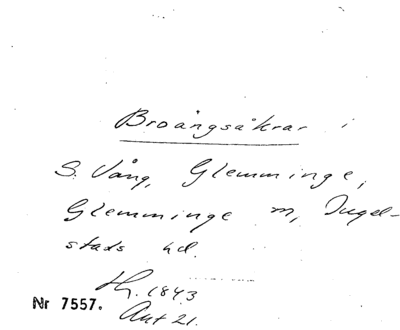 Broångsåkrar i
S. Vång, Glemminge,
Glemminge m, Ingel-
stads hd.
Hy. 1843
Akt 21.
Nr 7557.